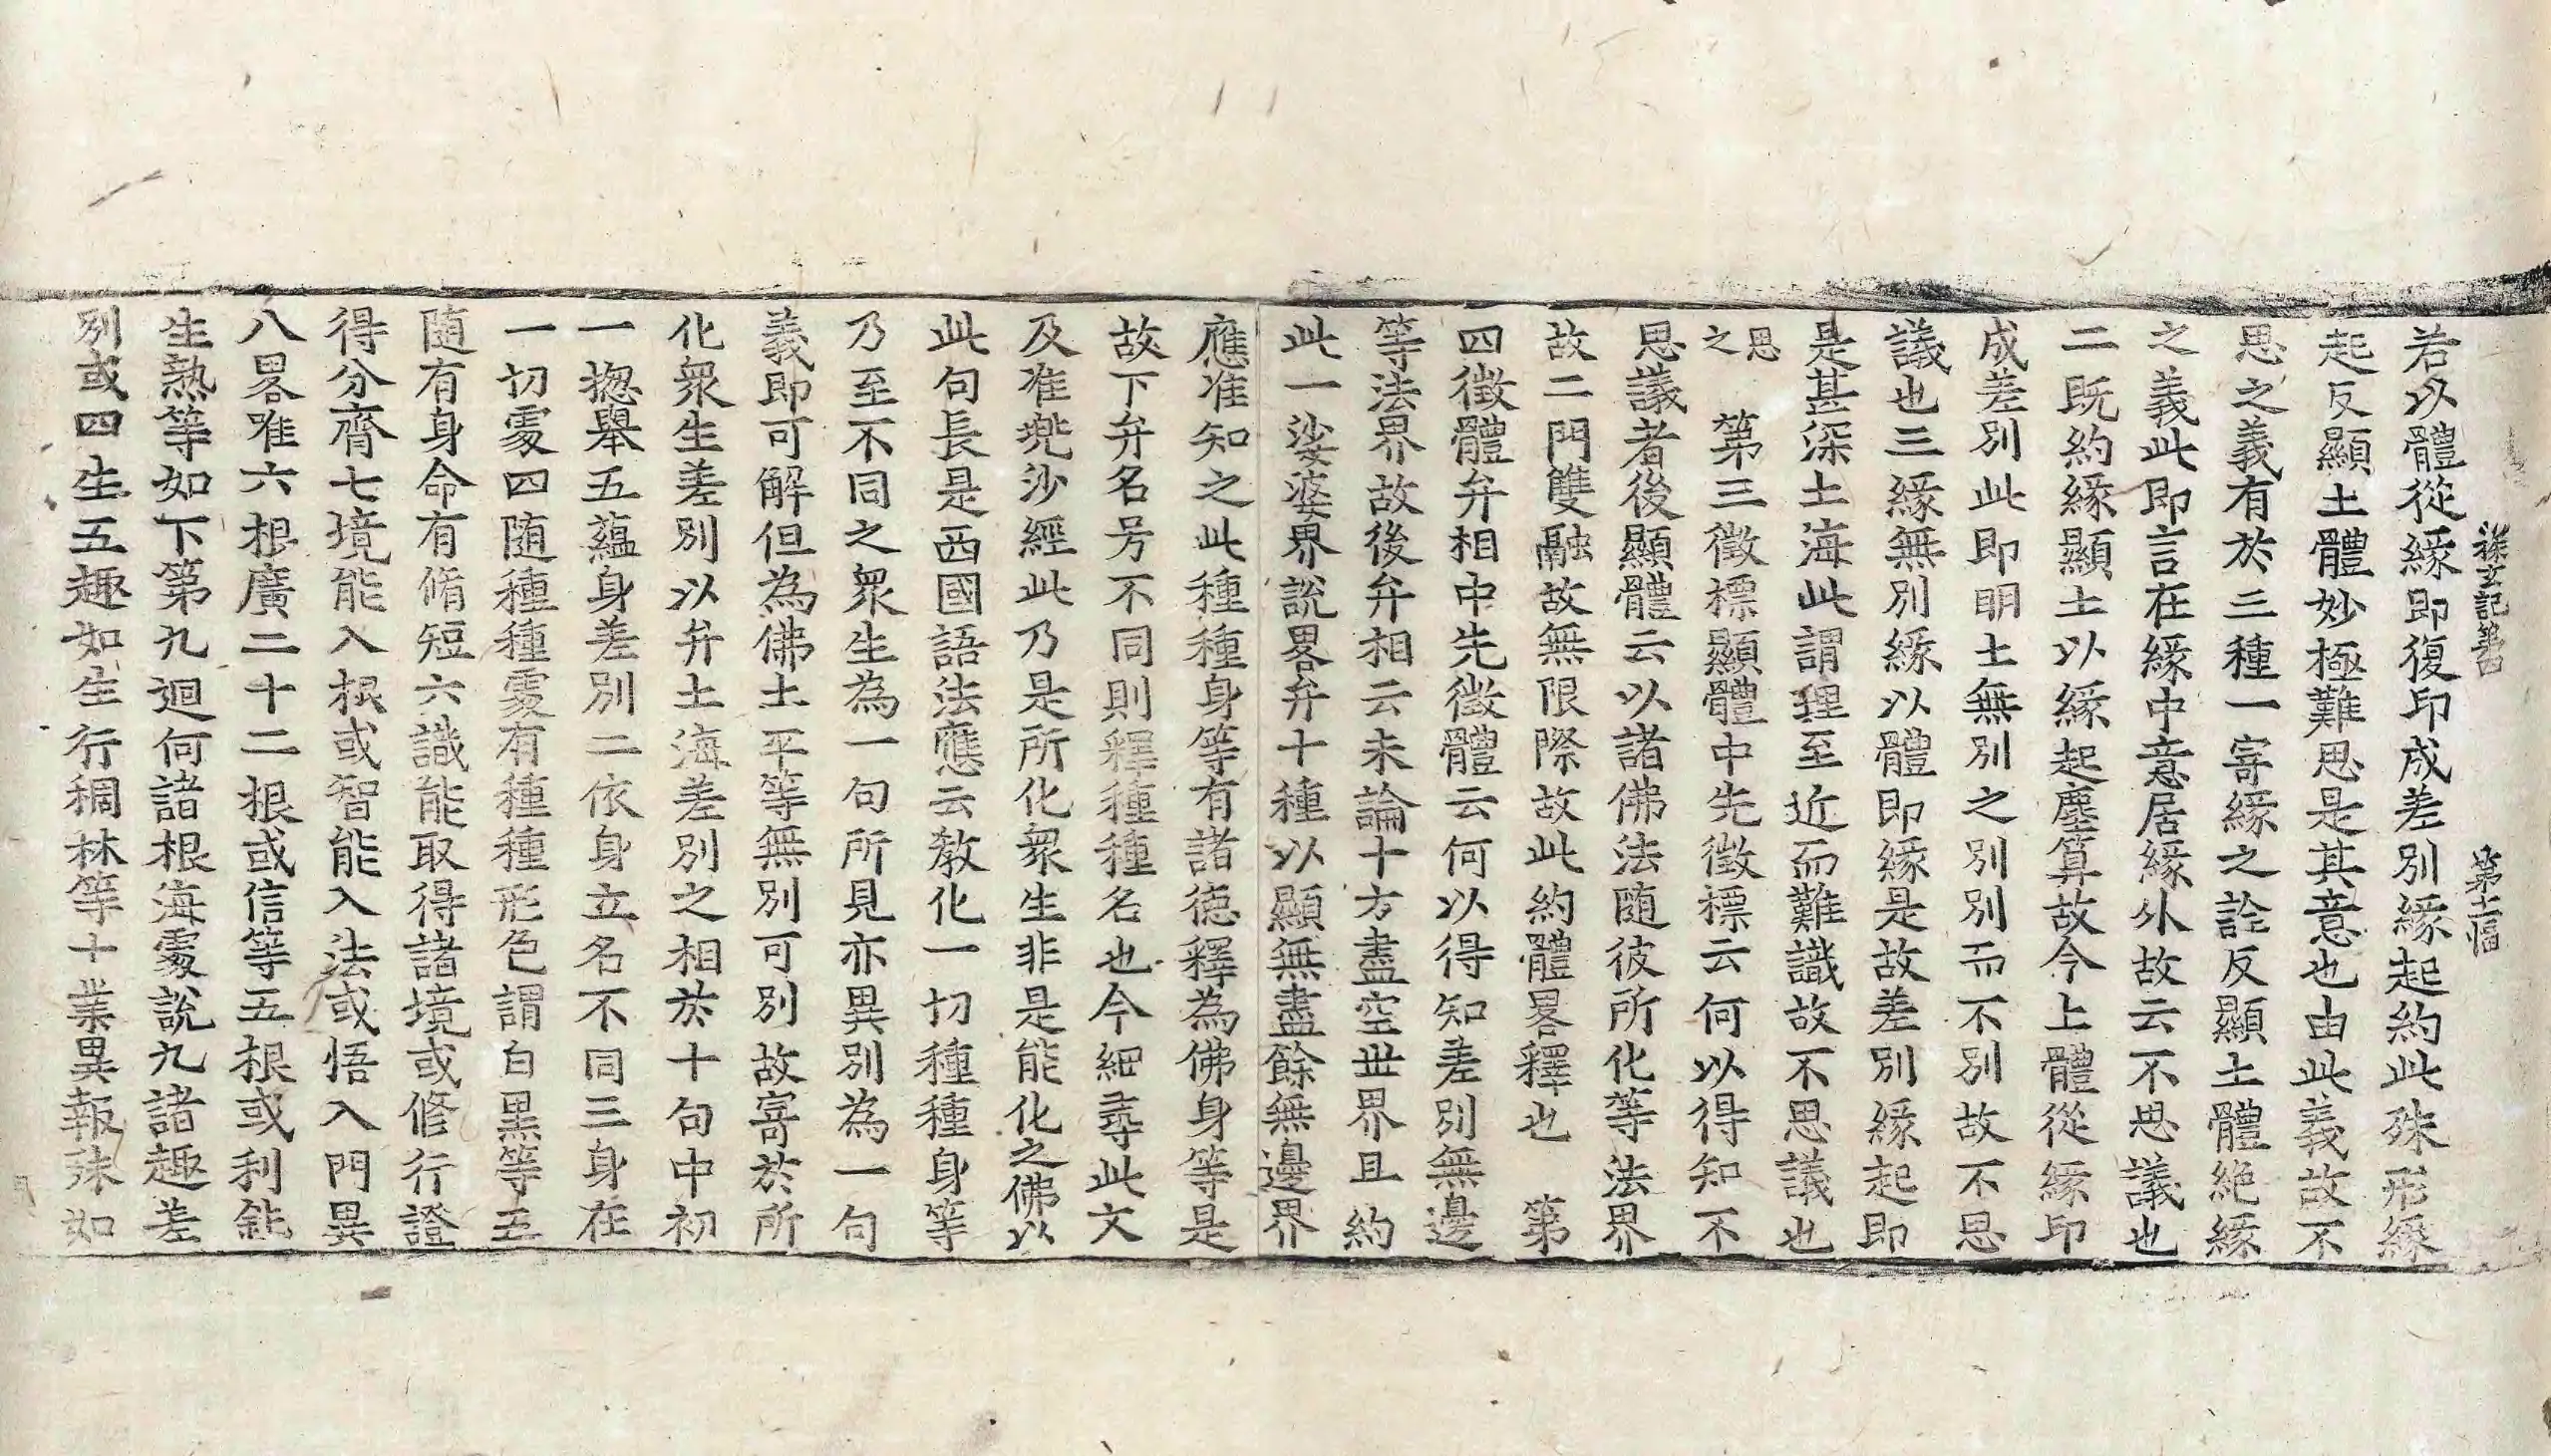 探玄記第四　第十二幅
若以體從緣即復印成差別緣起約此殊形緣
起反顯土體妙極難思是其意也由此義故不
思之義有於三種一寄緣之詮反顯土體絶緣
之義此即言在緣中意居緣外故云不思議也
二既約緣顯土以緣起塵算故今上體從緣印
成差別此即明土無別之別別而不別故不思
議也三緣無別緣以體即緣是故差別緣起即
是甚深土海此謂理至近而難識故不思議也
思之　第三徵標顯體中先徵標云何以得知不
思議者後顯體云以諸佛法随彼所化等法界
故二門雙融故無限際故此約體畧釋也　第
四徵體弁相中先徵體云何以得知差別無邊
等法界故後弁相云未論十方盡空世界且約
此一娑婆界說畧弁十種以顯無盡餘無邊界
應准知之此種種身等有諸德釋為佛身等是
故下弁名号不同則釋種種名也今細尋此文
及准兠沙經此乃是所化衆生非是能化之佛以
此句長是西國語法應云教化一切種種身等
乃至不同之衆生為一句所見亦異別為一句
義即可解但為佛土平等無別可別故寄於所
化衆生差別以弁土海差別之相於十句中初
一揔舉五蘊身差別二依身立名不同三身在
一切處四随種種處有種種形色謂白黒等五
随有身命有脩短六識能取得諸境或修行證
得分齊七境能入根或智能入法或悟入門異
八畧唯六根廣二十二根或信等五根或利鈍
生熟等如下第九迴向諸根海處說九諸趣差
别或四生五趣如生行稠林等十業異報殊如